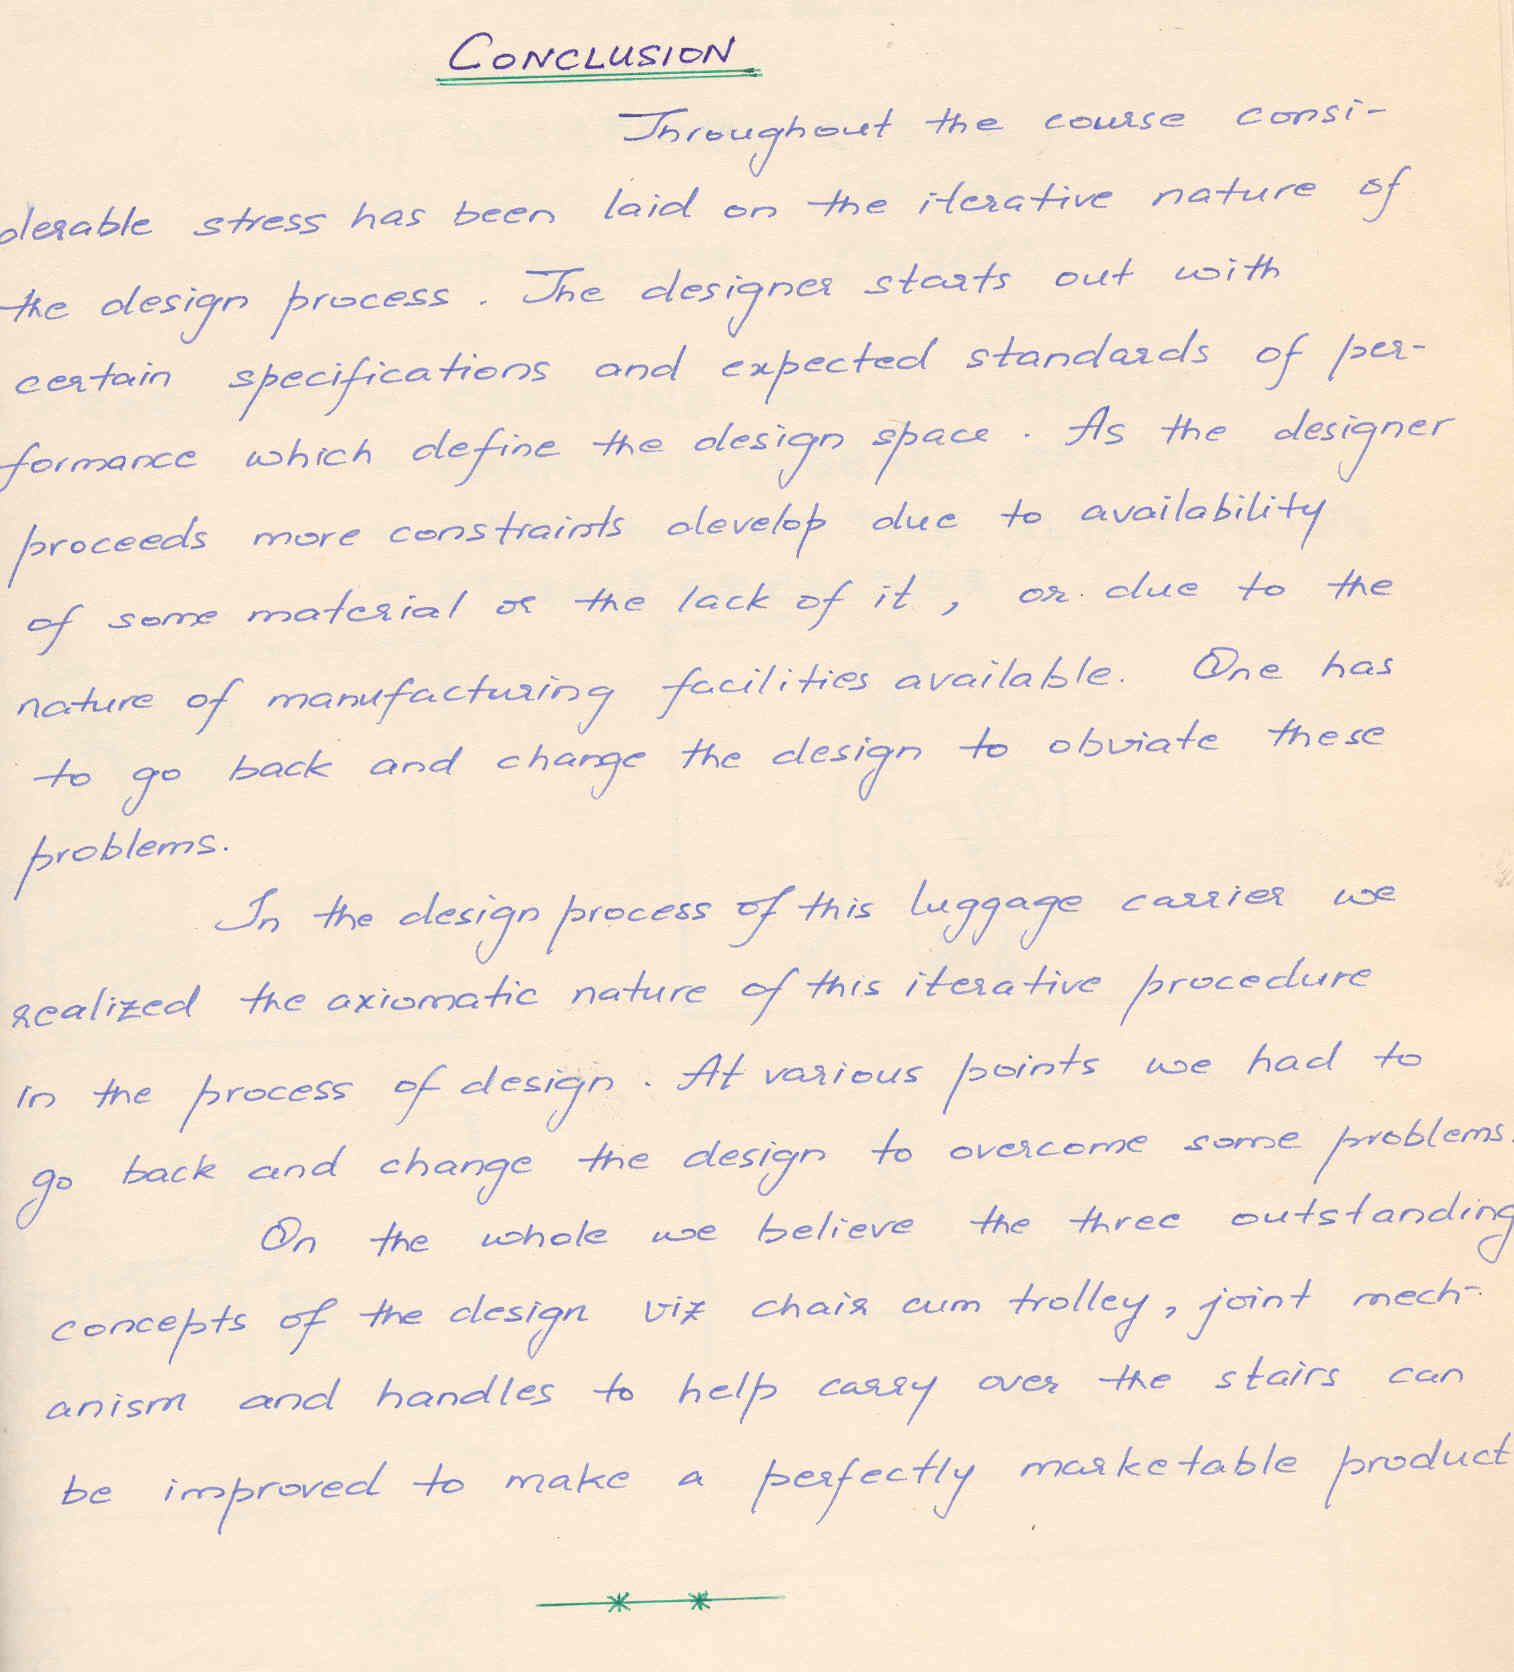 CONCLUSION
Throughout the course consi-
derable stress has been laid on the iterative nature of
the design process. The designer starts out with
certain specifications and expected standards of per-
formance which define the design space. As the designer
proceeds more constraints develop due to availability
of some material or the lack of it, or due to the
nature of manufacturing facilities available. One has
to go back and change the design to obviate these
problems.
In the design process of this luggage carrier we
realized the axiomatic nature of this iterative procedure
in the process of design. At various points we had to
go back and change the design to overcome some problems.
On the whole we believe the three outstanding
concepts of the design viz chair cum trolley, joint mech-
anism and handles to help carry over the stairs can
be improved to make a perfectly marketable product